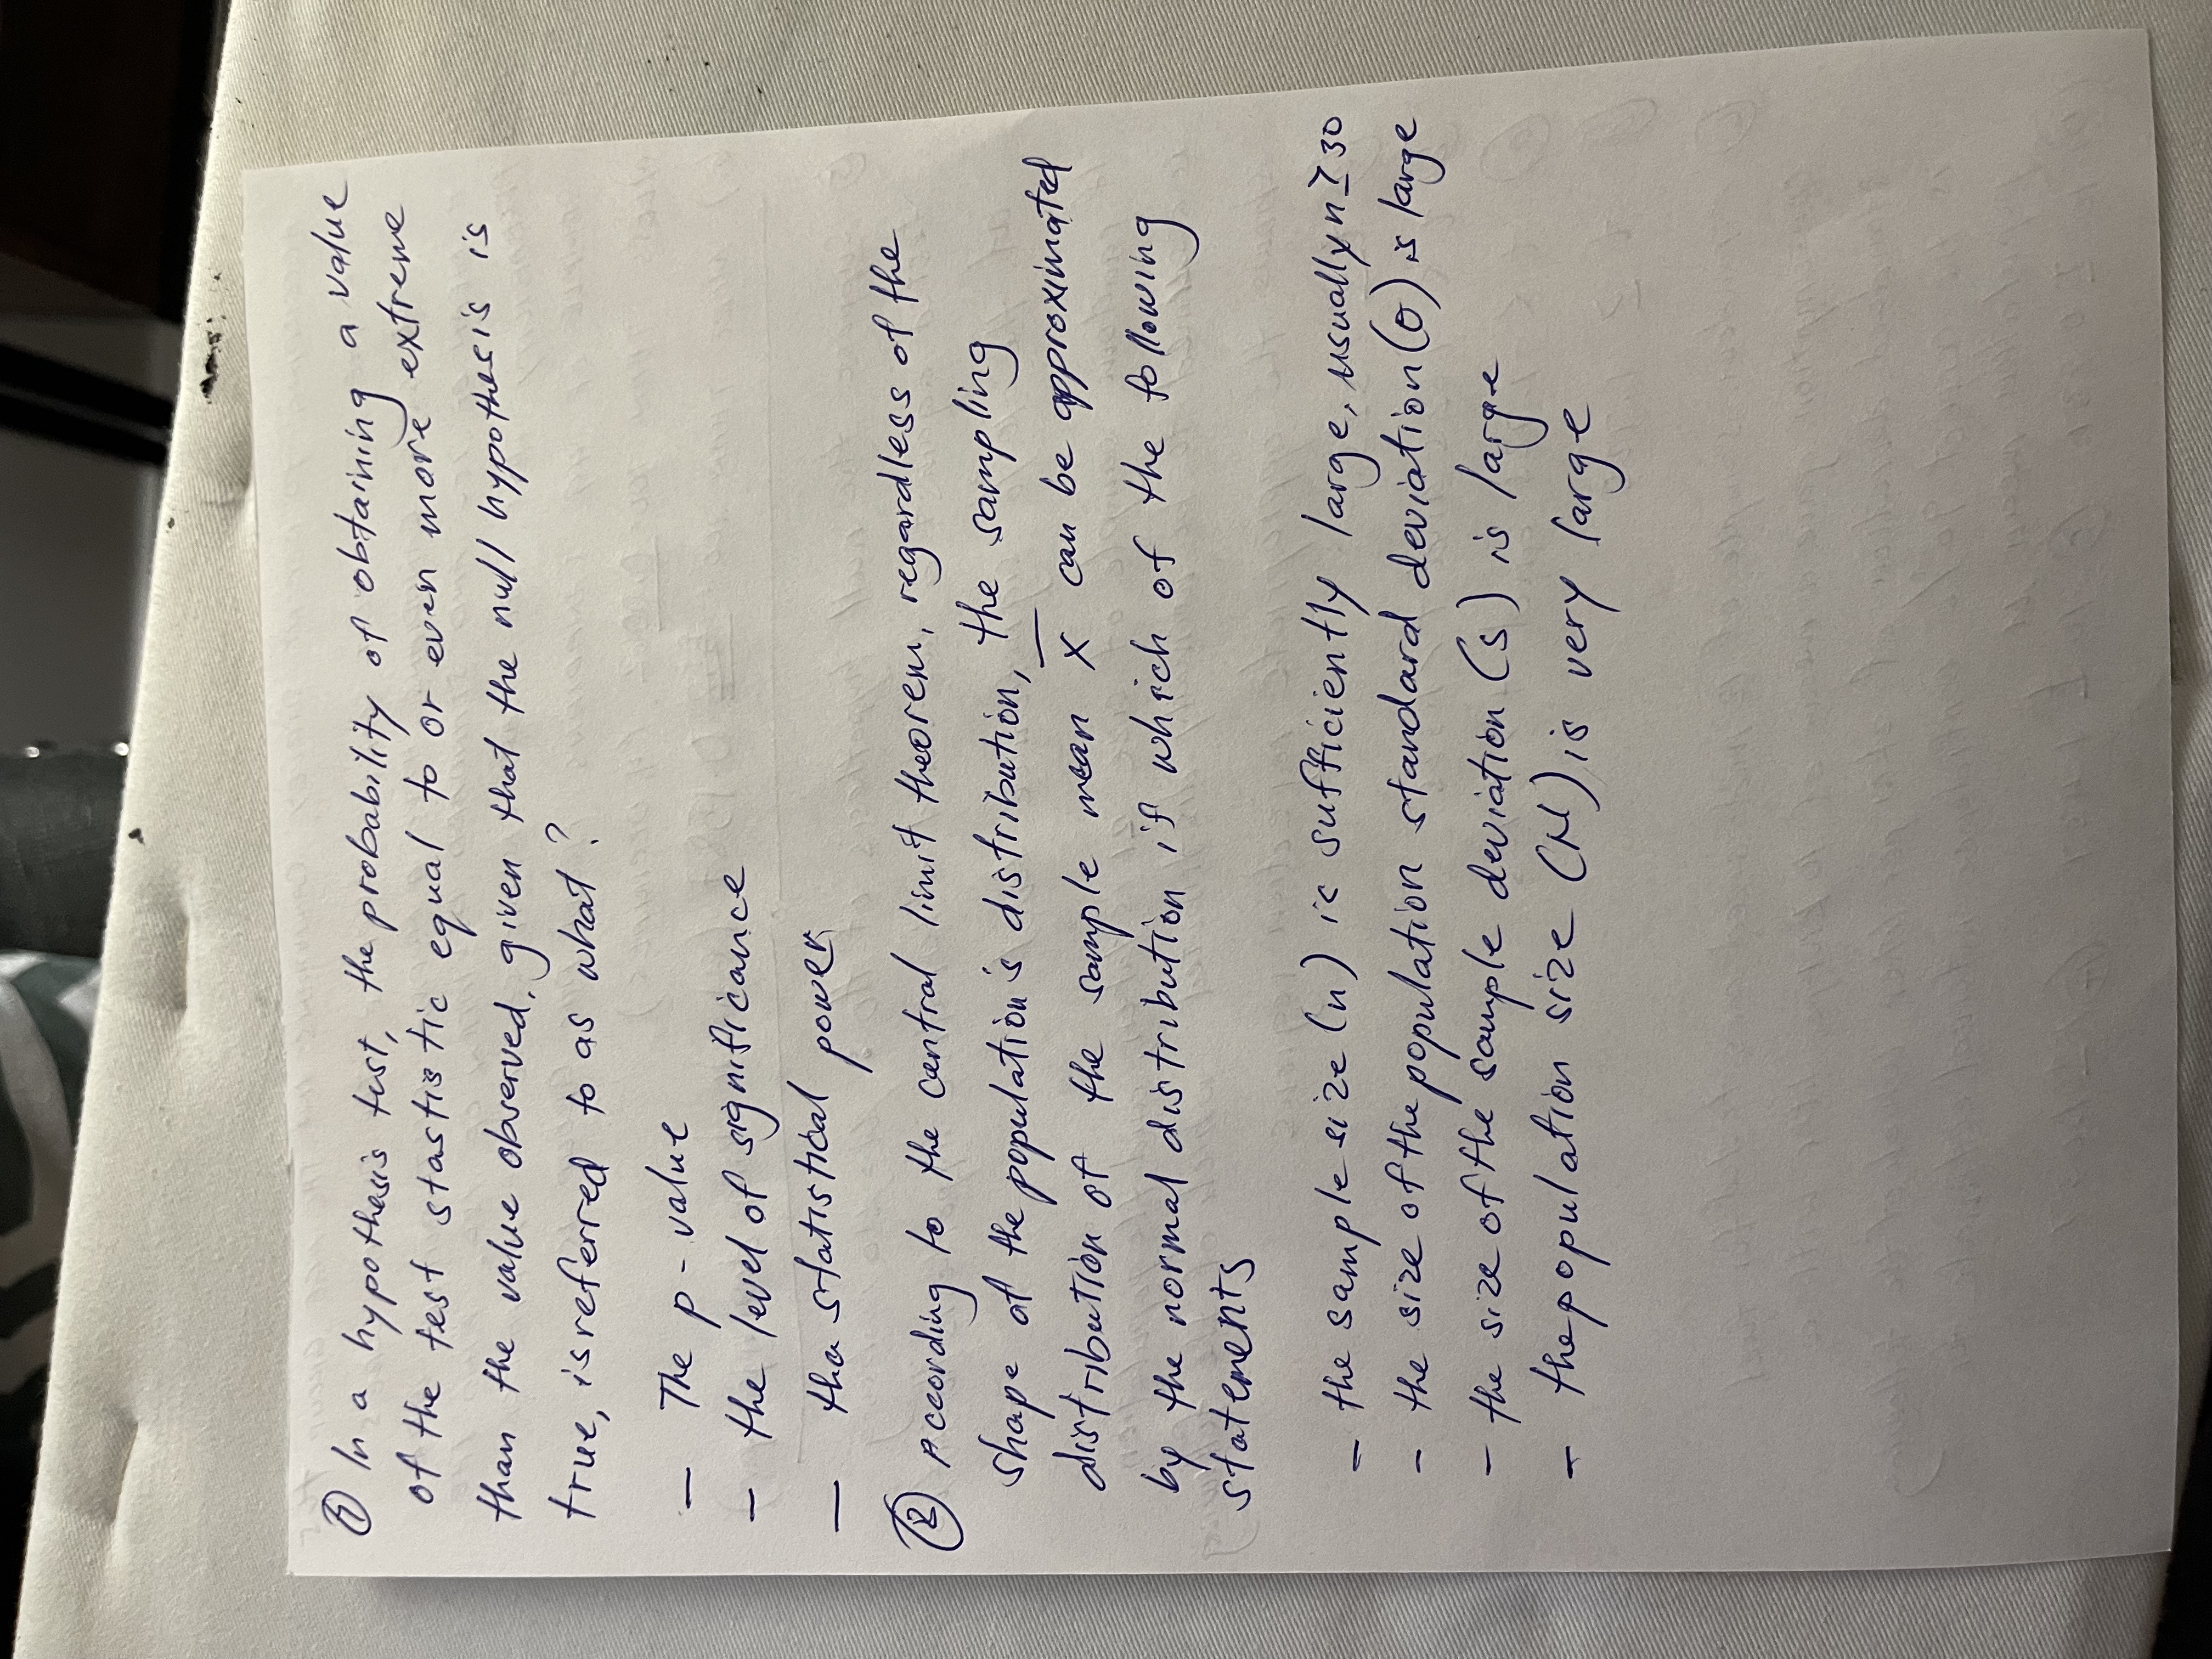 ① In a hypothesis test, the probability of obtaining a value
of the test stastistic equal to or even more extreme
than the value observed, given that the null hypothesis is
true, is referred to as what?
— The p-value
— the level of significance
— the statistical power
② According to the central limit theorem, regardless of the
shape of the population's distribution, the sampling
distribution of the sample mean x̅ can be approximated
by the normal distribution if which of the following
statements
— the sample size (n) is sufficiently large, usually n ≥ 30
— the size of the population standard deviation (σ) is large
— the size of the sample deviation (s) is large
— the population size (N) is very large